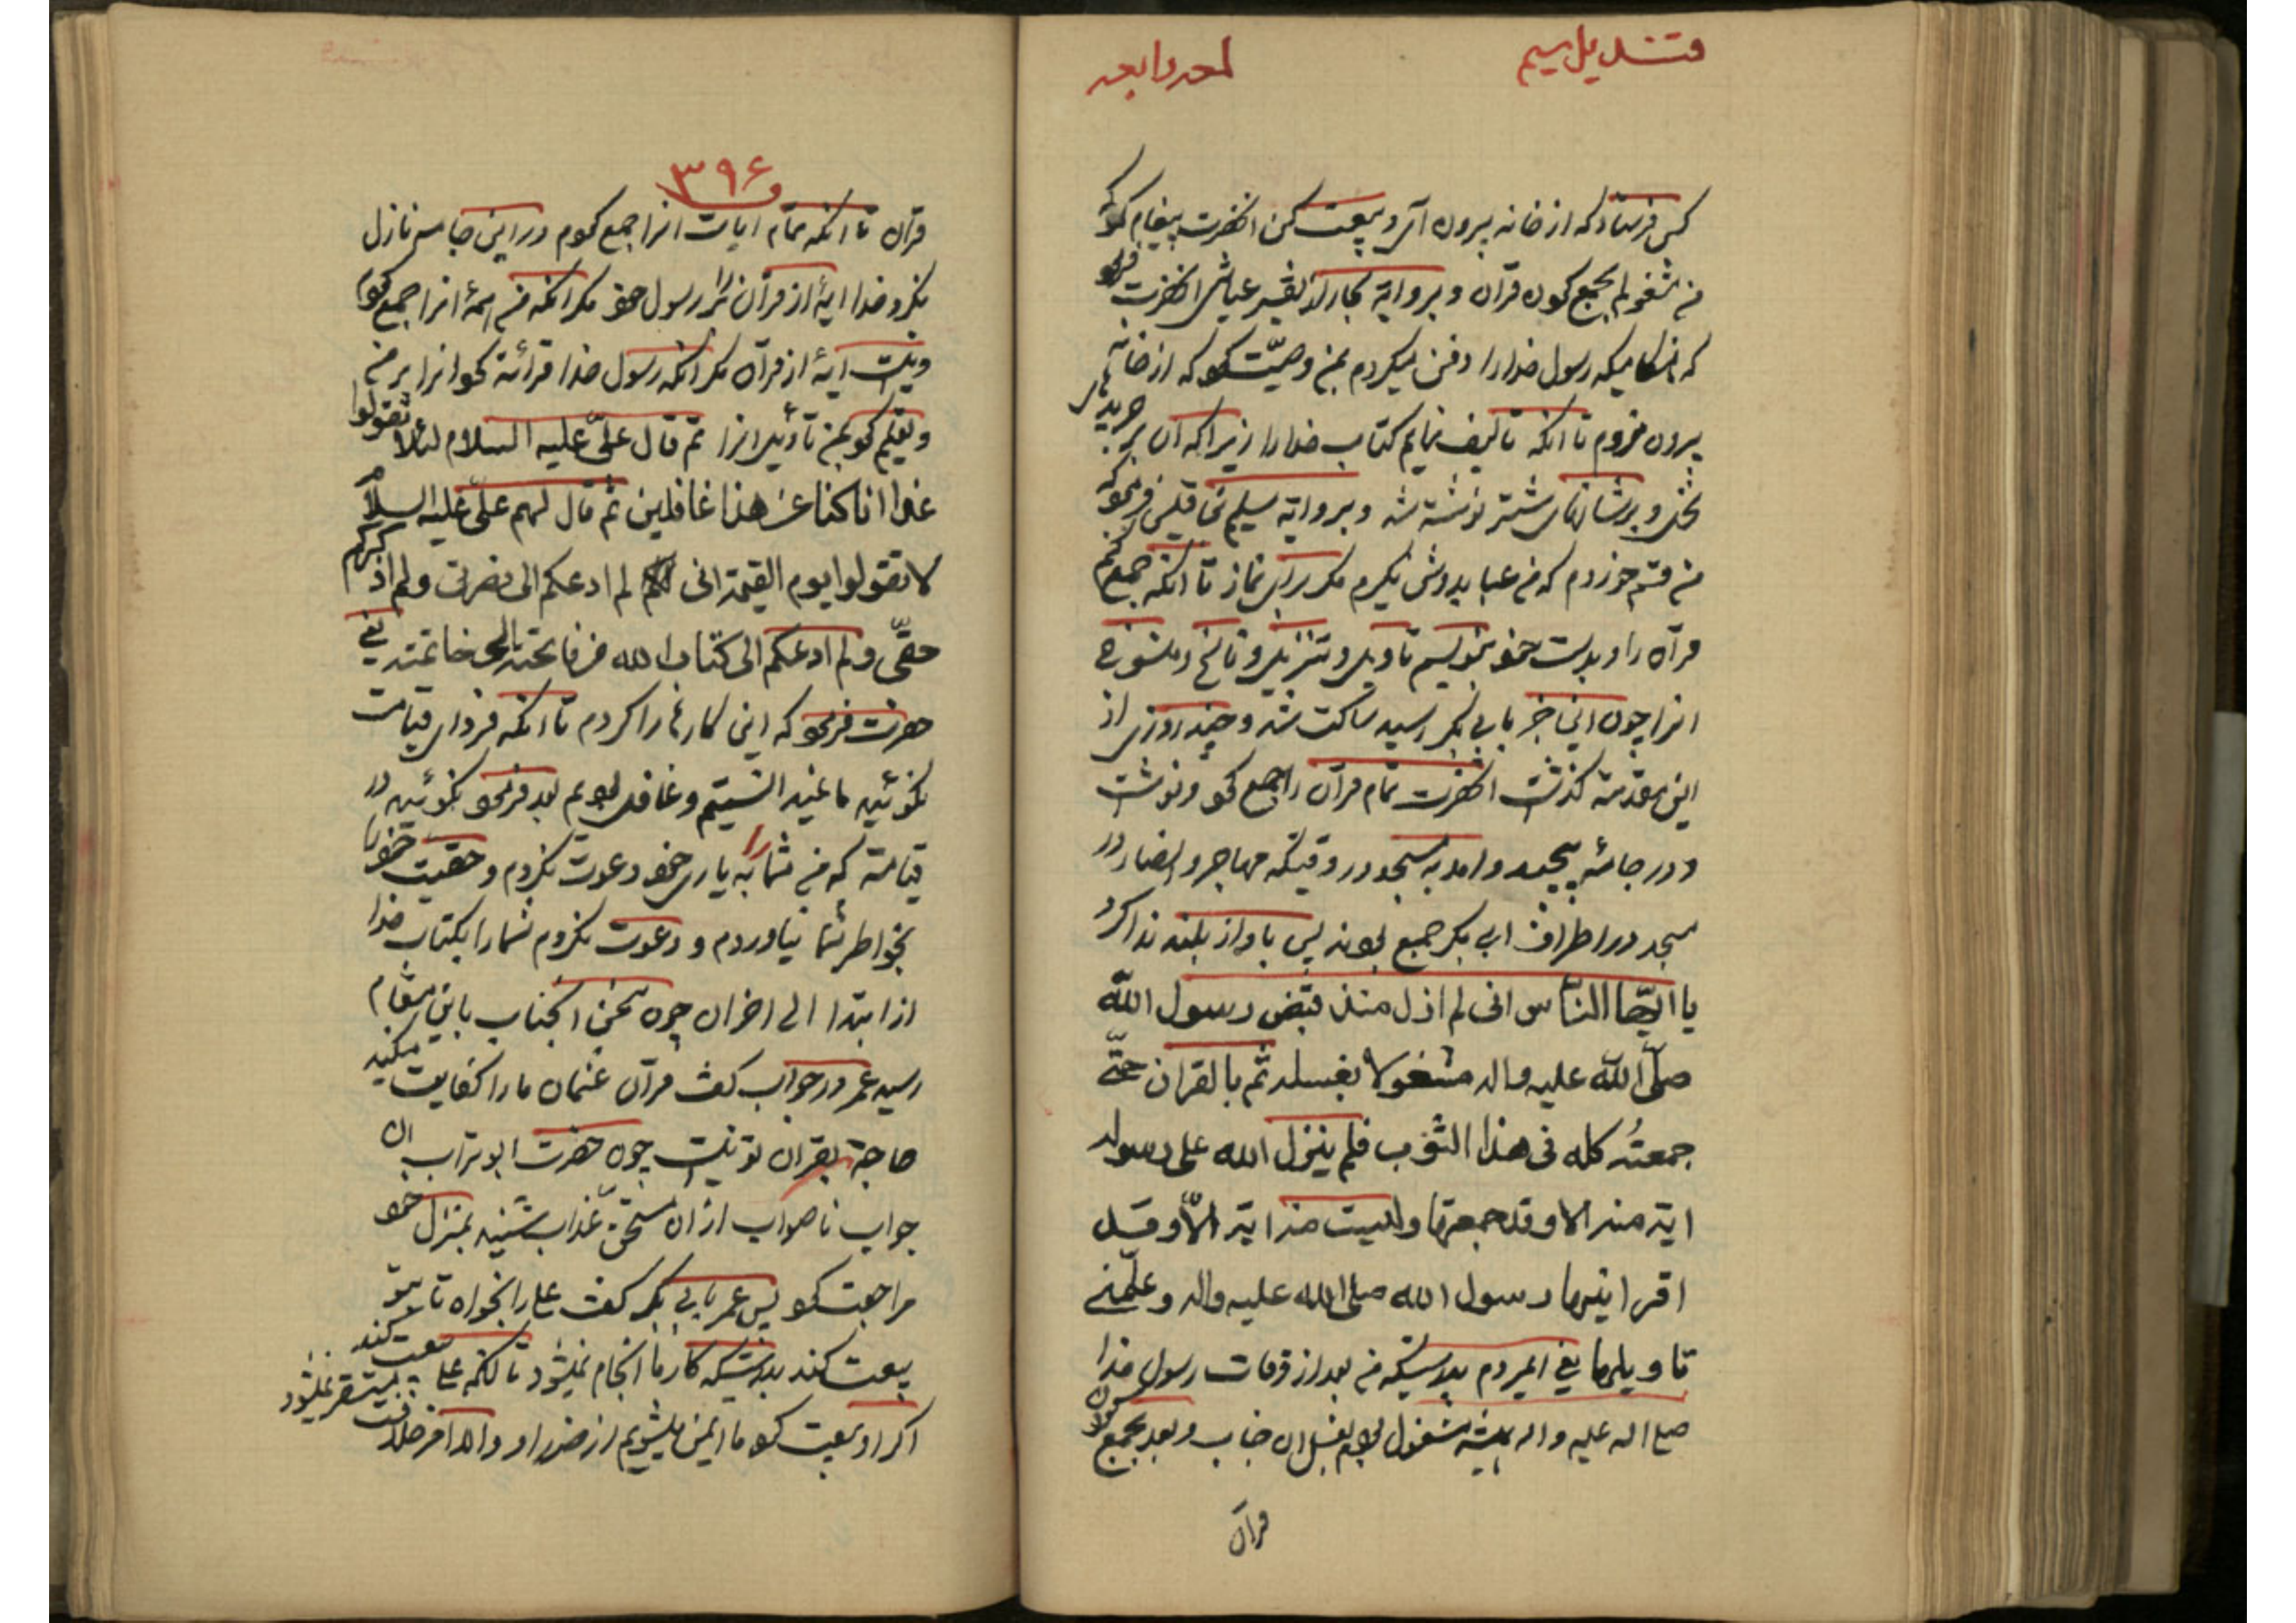 قندیل سیم
لمعه رابعه
کس فرستاد که از خانه بیرون آی و بیعت کن انحضرت پیغام کرد که
من مشغولم بجمع کردن قرآن و بروایة بحار از تفسیر عیاشی انحضرت فرمود
که هنکامیکه رسول خدا را دفن میکردم بمن وصیّت کرد که از خانه
بیرون نروم تا انکه تالیف نمایم کتاب خدا را زیرا که آن بر جریدهای
نخل و بر شانهای شتر نوشته شده و بروایة سلیم بن قیس فرمود که
من قسم خوردم که من عبا بدوش نکیرم مکر برای نماز تا انکه جمع کنم
قرآن را و بدست خود بنویسم تاویل و تنزیل و ناسخ و منسوخ
انرا چون این خبر بابی بکر رسید ساکت شد و چند روزی از
این مقدّمه کذشت انحضرت تمام قرآن را جمع کرد و نوشت
و در جامهٔ پیچید و امد به مسجد در وقتیکه مهاجر و انصار در
مسجد در اطراف ابی بکر جمع بودند پس باواز بلند ندا کرد
یا ایّها النّاس انی لم ازل منذ قبض رسول اللّه
صلّی اللّه علیه واله مشغولا بغسله ثم بالقران حتّی
جمعتُه کله فی هذا الثوب فلم ینزل الله علی رسوله
ایة منه الا وقد جمعتها ولیست منه ایة الّا وقد
اقرانیها رسول الله صلی الله علیه واله وعلّمنی
تاویلها یعنی ایمردم بدرستیکه من بعد از وفات رسول خدا
صلی اله علیه و اله همیشه مشغول بودم بغسل ان جناب و بعد بجمع کردن
قرآن
۳۹۶
قرآن تا انکه تمام ایات انرا جمع کردم در این جامه نازل
نکرد خدا ایهٔ از قرآن را بر رسول خود مکر انکه من همهٔ انرا جمع کردم
و نیست ایهٔ از قرآن مکر انکه رسول خدا قرائة کرد انرا بر من
و تعلیم کرد بمن تأویل انرا ثم قال علیّ علیه السلام لئلا تقولوا
غدا انا کنا عن هذا غافلین ثم قال لهم علیّ علیه السلام
لا تقولوا یوم القیمة انی لم ادعکم الی نصرتی ولم اذکرکم
حقّی ولم ادعکم الی کتاب الله من فاتحته الی خاتمته یعنی
حضرت فرمود که این کارها را کردم تا انکه فردای قیامت
نکوئید ما نمید انستیم و غافل بودیم بعد فرمود نکوئید در
قیامت که من شما را به یاری خود دعوت نکردم و حقیت خود را
بخواطر شما نیاوردم و دعوت نکردم شما را بکتاب خدا
از ابتدا الی اخر ان چون سخن انجناب باین مقام
رسید عمر در جواب کفت قرآن عثمان ما را کفایت میکند
حاجة بقران تو نیست چون حضرت ابو تراب ان
جواب ناصواب از ان مستحق عذاب شنید بمنزل خود
مراجعت کرد پس عمر بابی بکر کفت علی را بخواه تا بیتو
بیعت کند بدرستیکه کار ما انجام نمیشود تا انکه علی بیعت کند مستقر نمیشود
اکر او بیعت کرد ما ایمن میشویم از ضرر او و الا امر خلافت